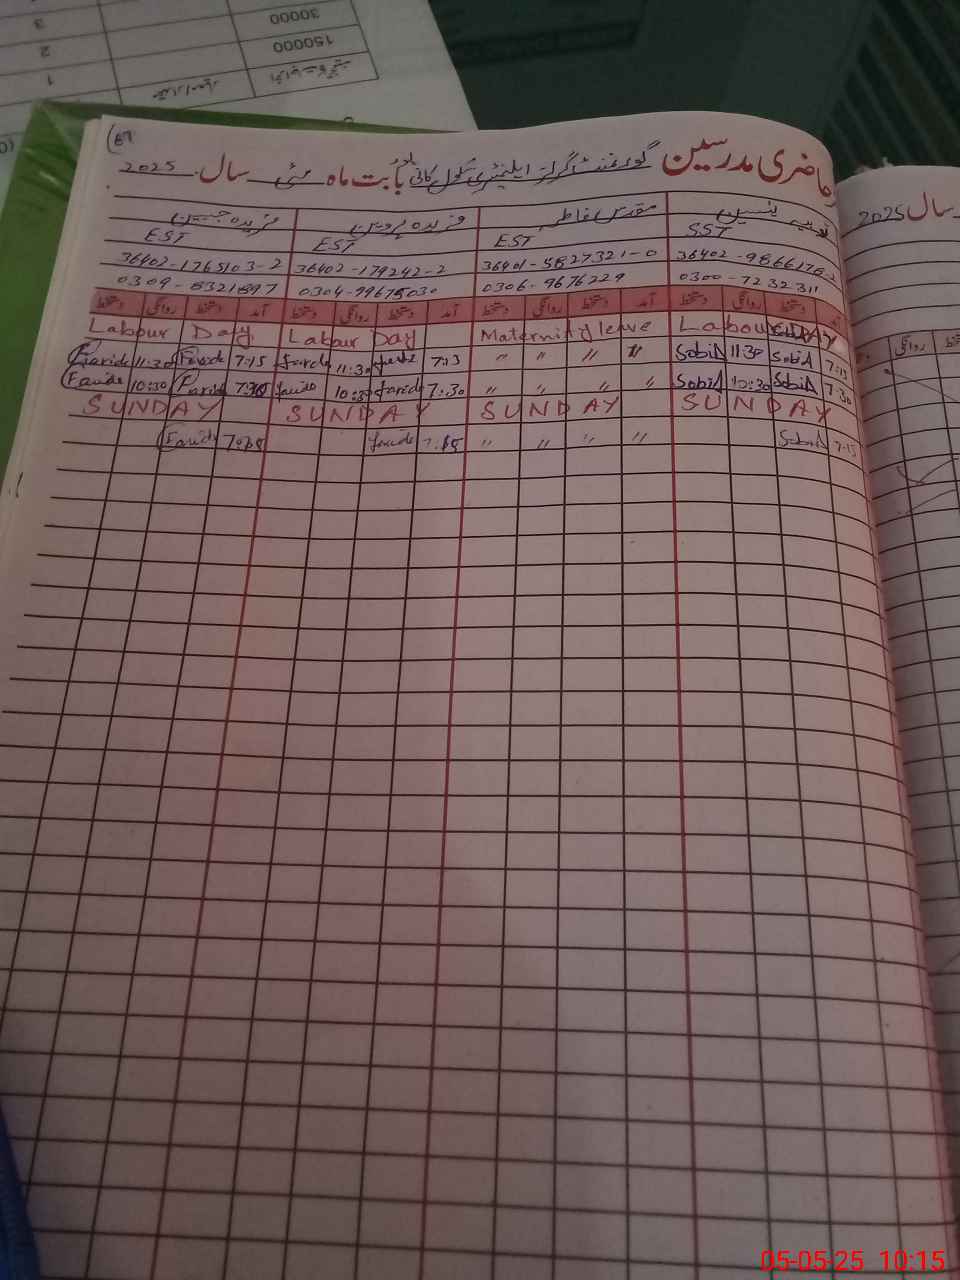 1
2
3
150000
30000
حاضری مدرسین گورنمنٹ گرلز ایلیمنٹری سکول بابت ماہ مئی سال 2025
سال 2025
فریدہ جبیں فریدہ پروین مقدس فاطمہ ثوبیہ یٰسین
EST EST EST SST
36402-1765103-2 36402-179242-2 36401-5827321-0 36402-9866178-2
0309-8321897 0304-99675030 0306-9676229 0300-7232311
دستخط روانگی دستخط آمد دستخط روانگی دستخط آمد دستخط روانگی دستخط آمد دستخط روانگی دستخط آمد
روانگی
Labour Day Labour Day Maternity leave Labour DAY
Faride 11:30 Faride 7:15 faride 11:30 faride 7:15 " " " " SobiA 11:30 SobiA 7:15
Faride 10:30 Faride 7:30 faride 10:30 faride 7:30 " " " " SobiA 10:30 SobiA 7:30
SUNDAY SUNDAY SUNDAY SUNDAY
Faride 7:15 faride 7:15 " " " " SobiA 7:15
05-05-25 10:15